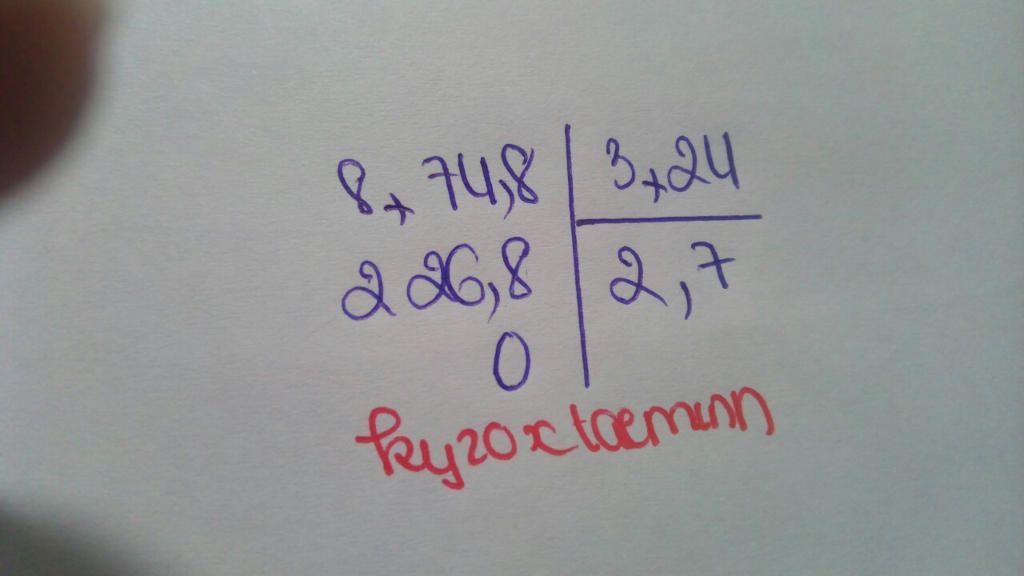 8, 74,8 3,24
226,8 2,7
0
kyzoxtaeminn